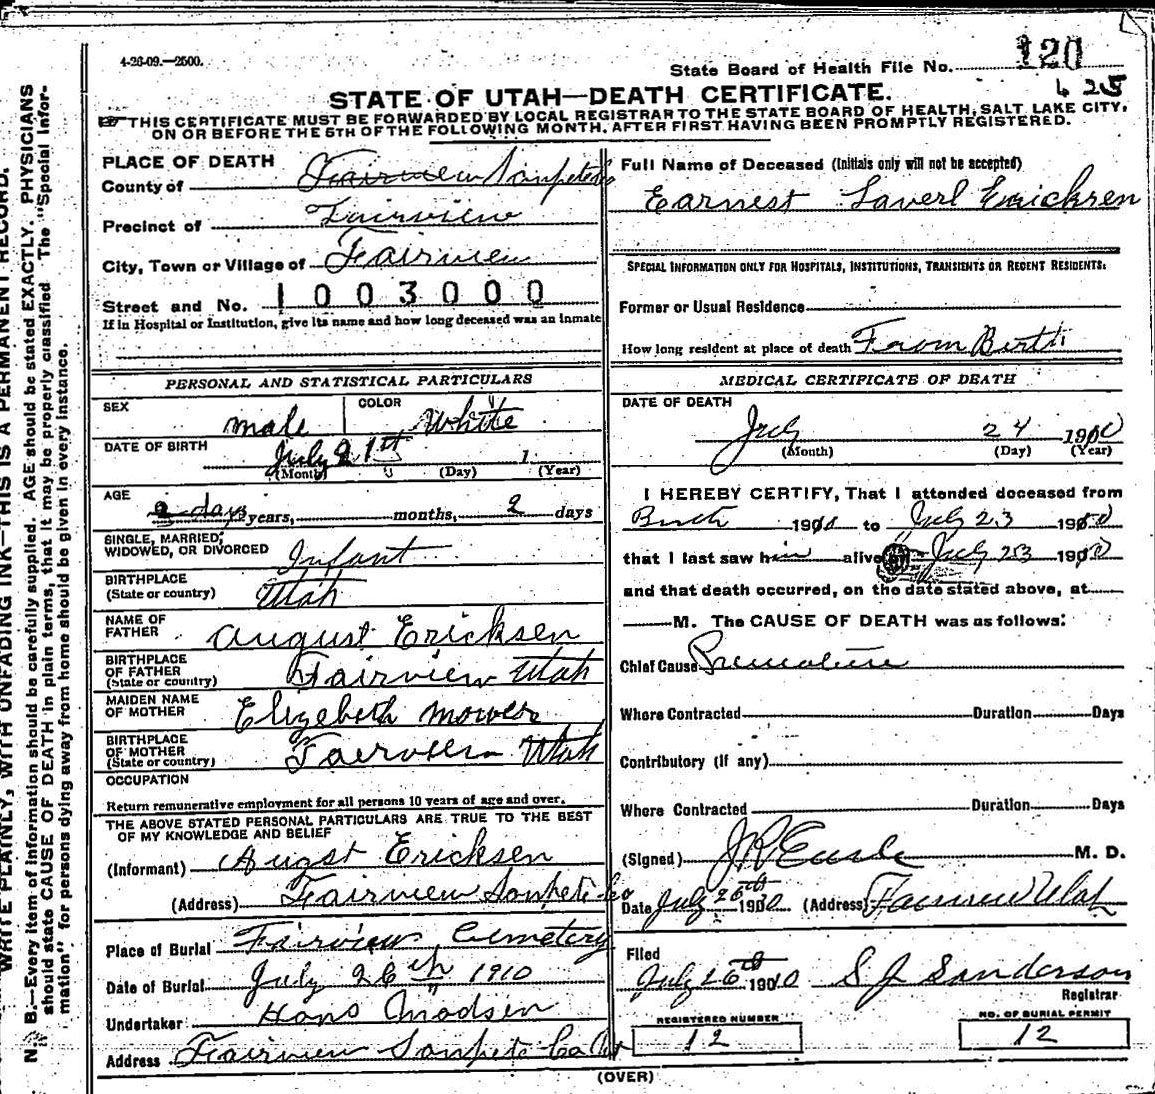 4-26-09.—2500.
State Board of Health File No. 120
425
STATE OF UTAH—DEATH CERTIFICATE.
THIS CERTIFICATE MUST BE FORWARDED BY LOCAL REGISTRAR TO THE STATE BOARD OF HEALTH, SALT LAKE CITY,
ON OR BEFORE THE 5TH OF THE FOLLOWING MONTH, AFTER FIRST HAVING BEEN PROMPTLY REGISTERED.
PLACE OF DEATH
County of Fairview Sanpete
Precinct of Fairview
City, Town or Village of Fairview
Street and No. 1003000
If in Hospital or Institution, give its name and how long deceased was an inmate
PERSONAL AND STATISTICAL PARTICULARS
SEX male COLOR White
DATE OF BIRTH July 21st 1
(Month) (Day) (Year)
AGE 2 days years, months, 2 days
SINGLE, MARRIED,
WIDOWED, OR DIVORCED Infant
BIRTHPLACE
(State or country) Utah
NAME OF
FATHER August Ericksen
BIRTHPLACE
OF FATHER
(State or country) Fairview Utah
MAIDEN NAME
OF MOTHER Elizebeth Mower
BIRTHPLACE
OF MOTHER
(State or country) Fairview Utah
OCCUPATION
Return remunerative employment for all persons 10 years of age and over.
THE ABOVE STATED PERSONAL PARTICULARS ARE TRUE TO THE BEST
OF MY KNOWLEDGE AND BELIEF
(Informant) Augst Ericksen
(Address) Fairview Sanpete Co
Place of Burial Fairview Cemetery
Date of Burial July 26th 1910
Undertaker Hans Madsen
Address Fairview Sanpete Co Ut
Full Name of Deceased (Initials only will not be accepted)
Earnest Laverl Erichsen
SPECIAL INFORMATION ONLY FOR HOSPITALS, INSTITUTIONS, TRANSIENTS OR RECENT RESIDENTS:
Former or Usual Residence
How long resident at place of death From Birth
MEDICAL CERTIFICATE OF DEATH
DATE OF DEATH
July 24 1910
(Month) (Day) (Year)
I HEREBY CERTIFY, That I attended deceased from
Birth 1910 to July 23 1910
that I last saw him alive on July 23 1910
and that death occurred, on the date stated above, at
M. The CAUSE OF DEATH was as follows:
Chief Cause Premature
Where Contracted Duration Days
Contributory (if any)
Where Contracted Duration Days
(Signed) M. D.
Date July 26th 1910 (Address) Fairview Utah
Filed
July 26th 1910 S J Sanderson
Registrar
REGISTERED NUMBER
12
NO. OF BURIAL PERMIT
12
(OVER)
WRITE PLAINLY, WITH UNFADING INK—THIS IS A PERMANENT RECORD.
N. B.—Every item of information should be carefully supplied. AGE should be stated EXACTLY. PHYSICIANS
should state CAUSE OF DEATH in plain terms, that it may be properly classified. The "Special Infor-
mation" for persons dying away from home should be given in every instance.